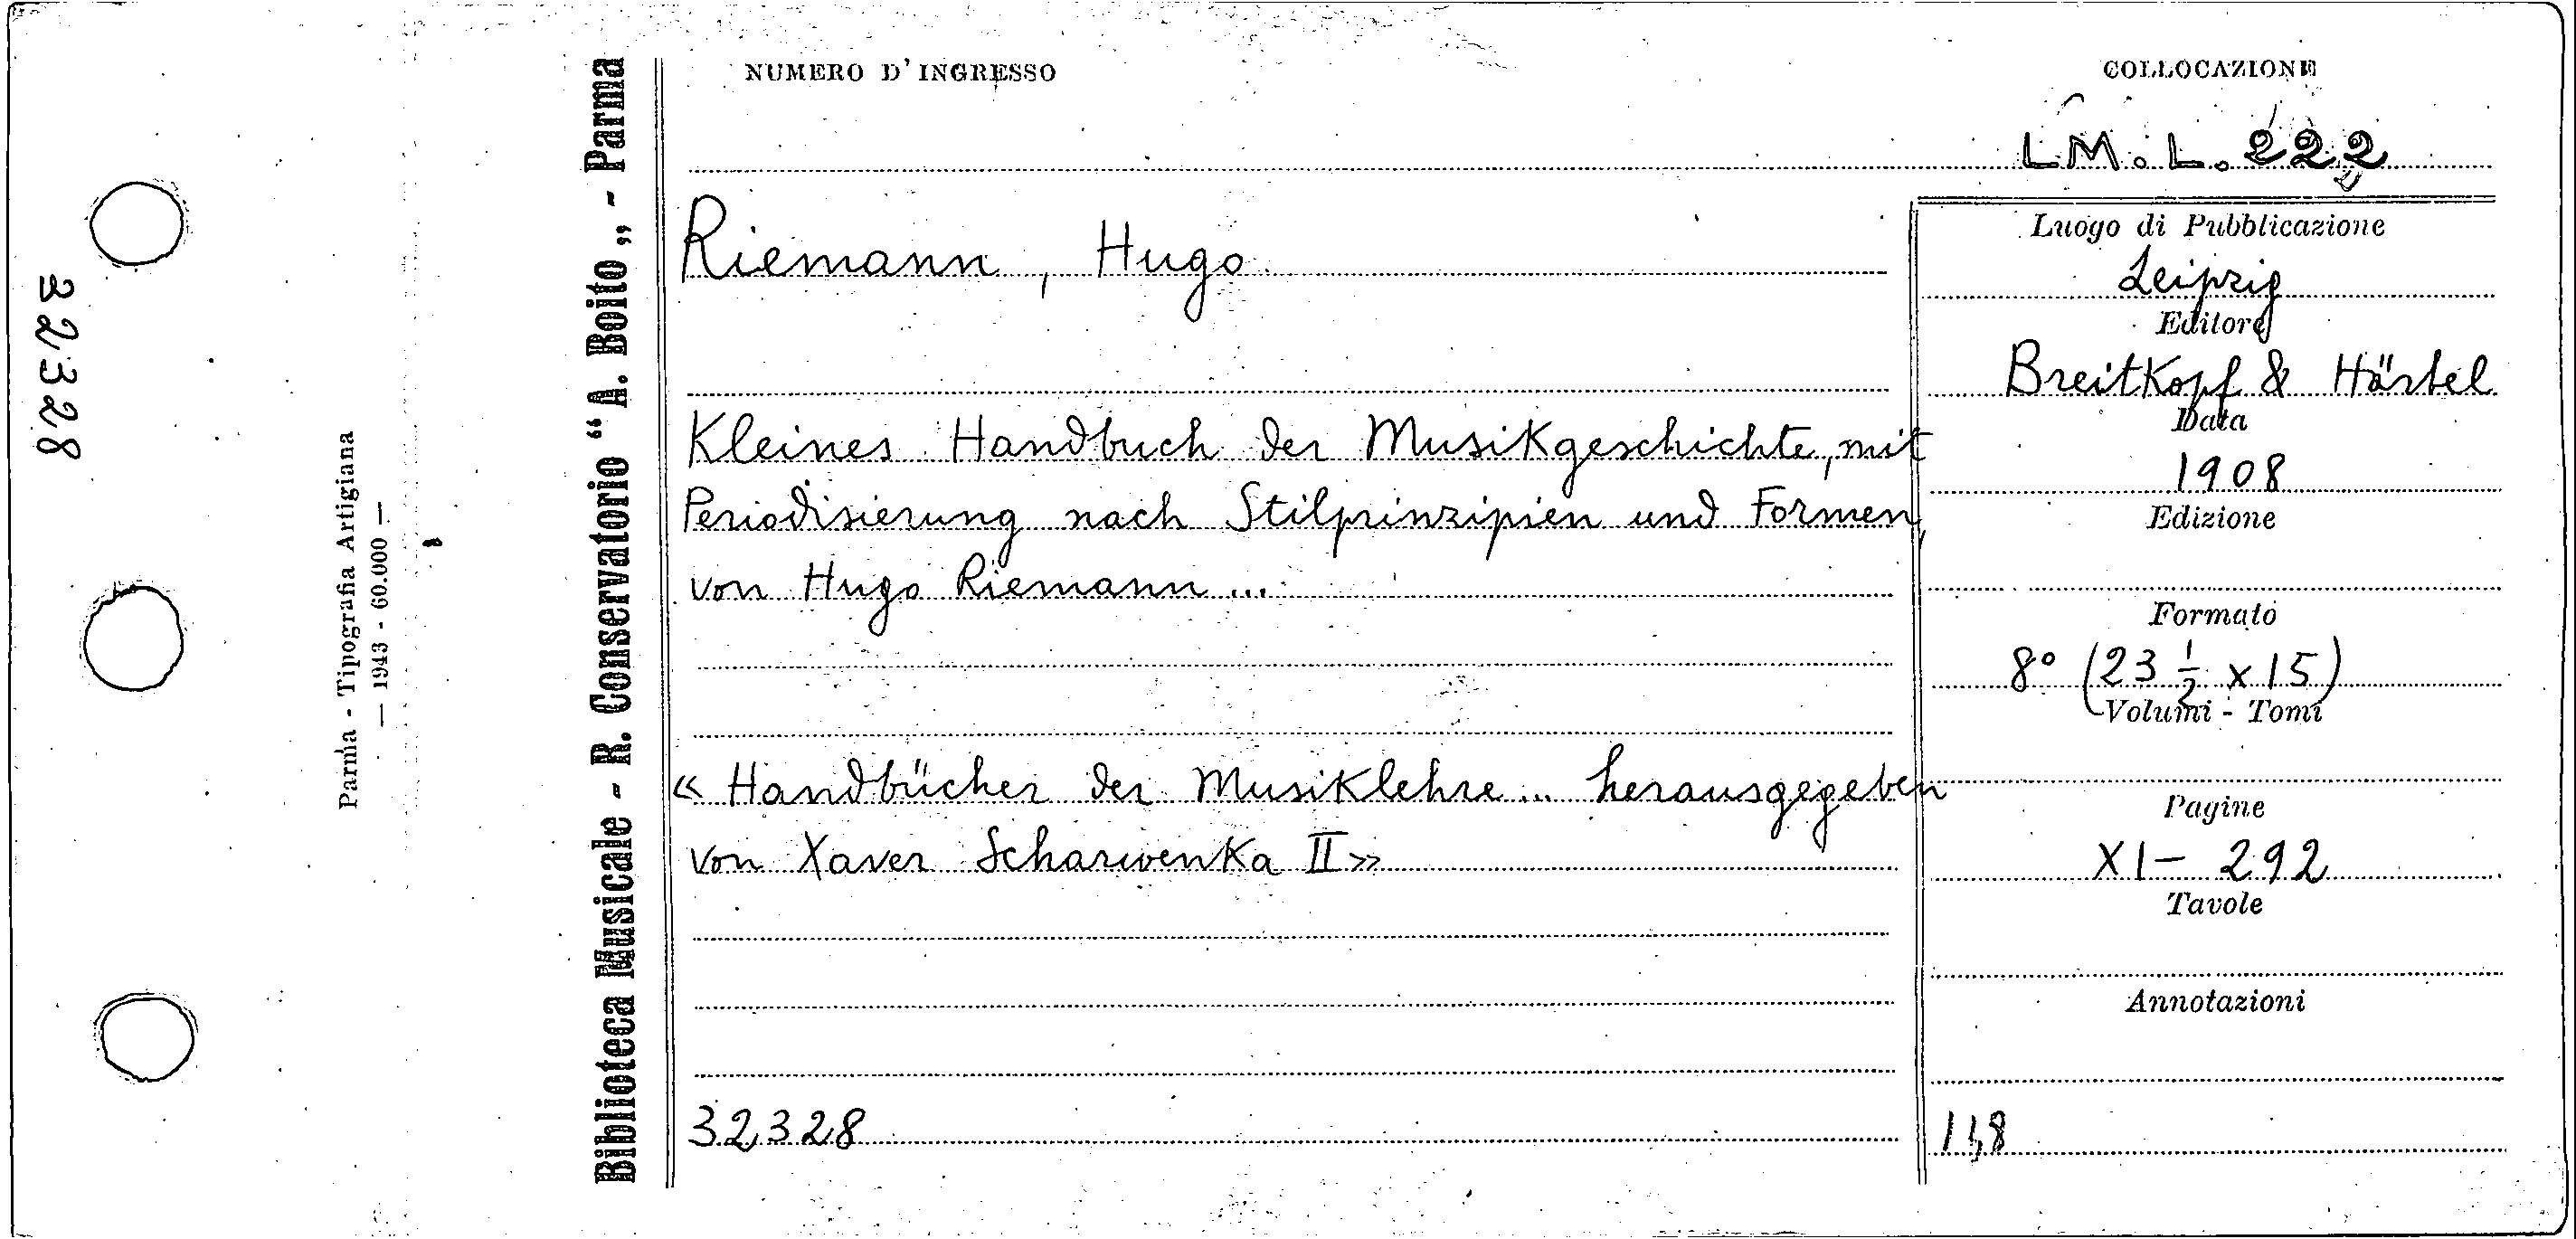 32328
Parma - Tipografia Artigiana
— 1943 - 60.000 —
Biblioteca Musicale - R. Conservatorio “A. Boito„ - Parma
NUMERO D'INGRESSO
COLLOCAZIONE
LM. L. 222
Riemann, Hugo
Kleines Handbuch der Musikgeschichte, mit
Periodisierung nach Stilprinzipien und Formen,
von Hugo Riemann ...
« Handbücher der Musiklehre ... herausgegeben
von Xaver Scharwenka II »
32328
Luogo di Pubblicazione
Leipzig
Editore
Breitkopf & Härtel
Data
1908
Edizione
Formato
8° (23 1/2 x 15)
Volumi - Tomi
Pagine
XI - 292
Tavole
Annotazioni